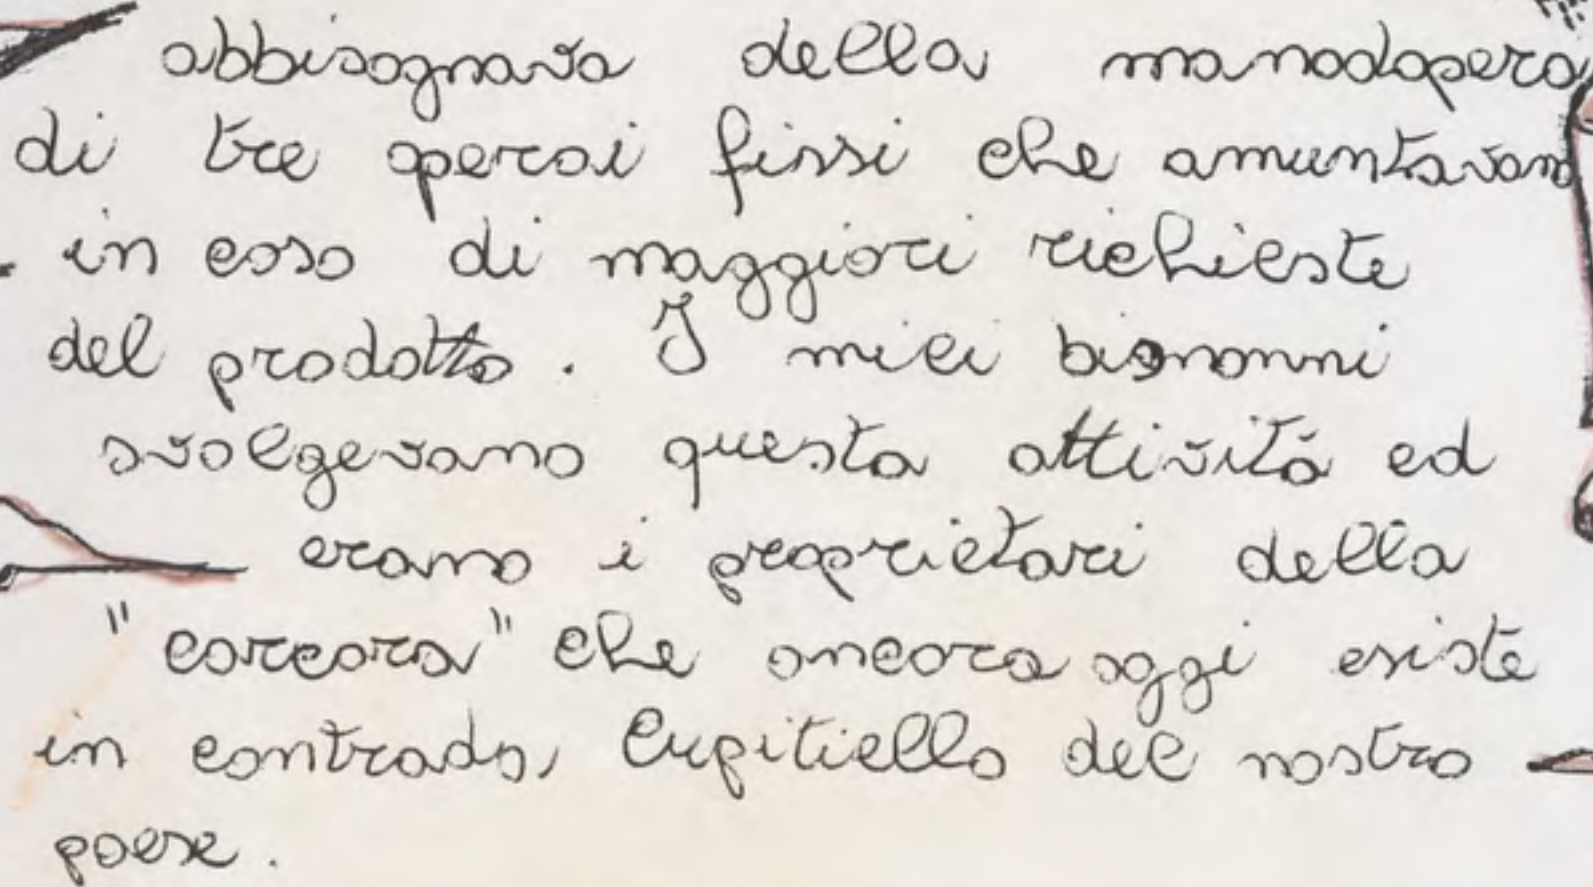 abbisognava della manodopera
di tre operai fissi che amuntavano
in caso di maggiori richieste
del prodotto. I miei bisnonni
svolgevano questa attività ed
erano i proprietari della
"carcara" che ancora oggi esiste
in contrada, Cupitiello del nostro
paese.